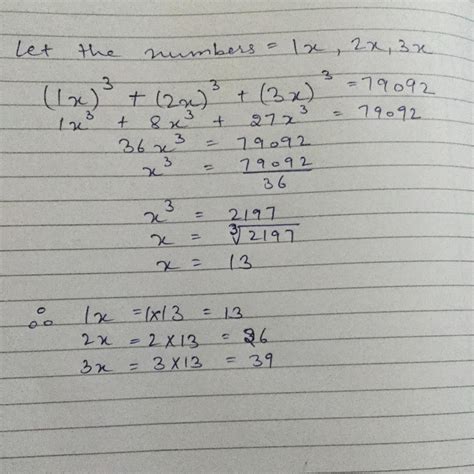 Let the numbers = 1x, 2x, 3x
(1x)³ + (2x)³ + (3x)³ = 79092
1x³ + 8x³ + 27x³ = 79092
36x³ = 79092
x³ = 79092/36
x³ = 2197
x = ∛2197
x = 13
∴ 1x = 1×13 = 13
2x = 2×13 = 26
3x = 3×13 = 39